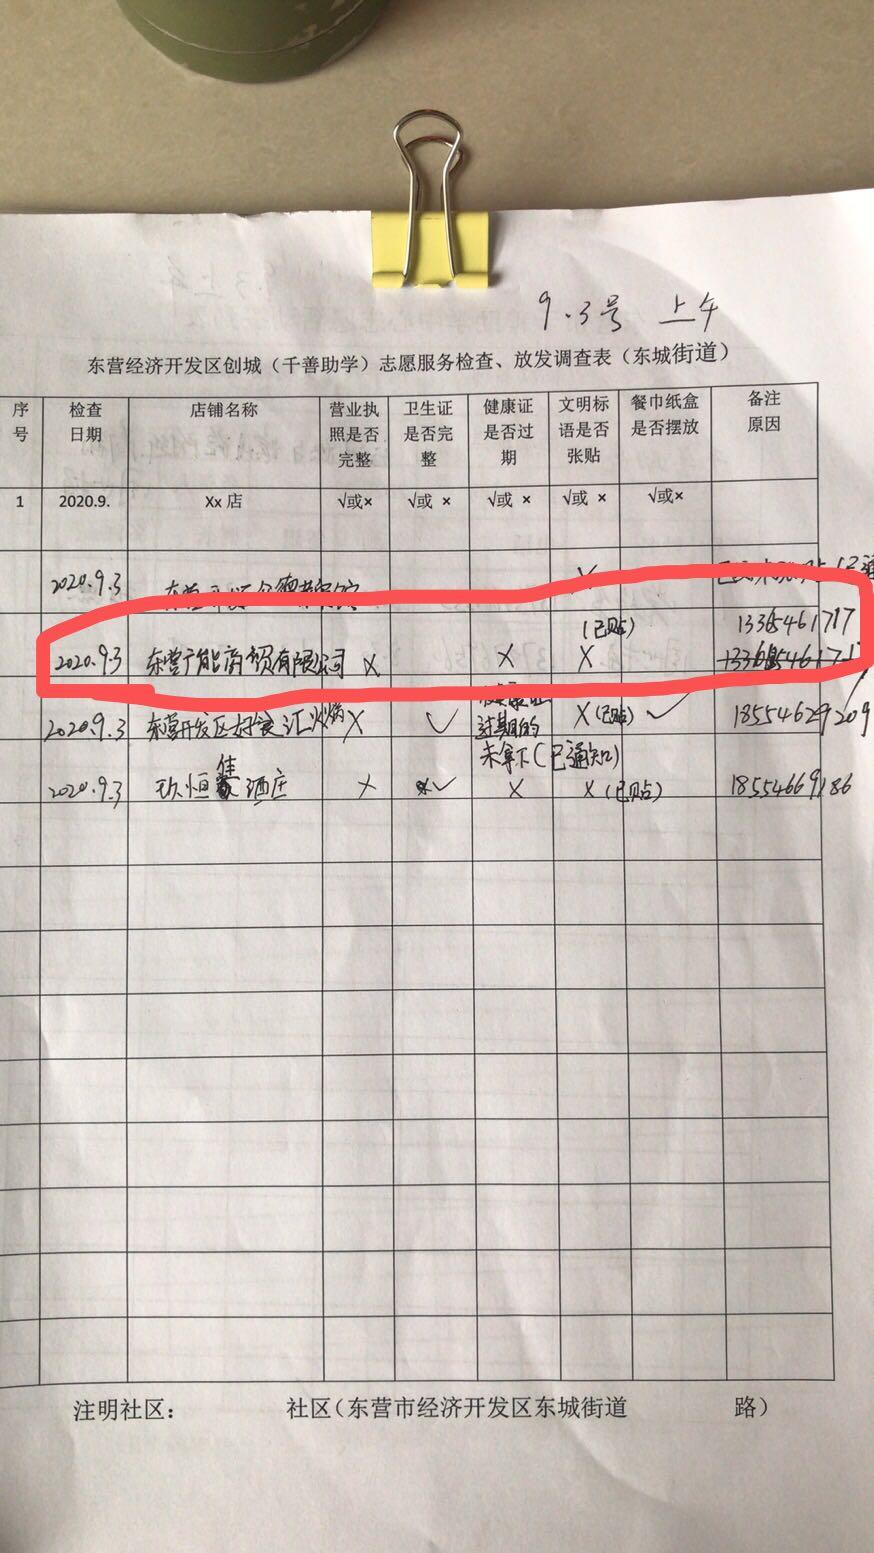 9.3号 上午
东营经济开发区创城（千善助学）志愿服务检查、放发调查表（东城街道）
序号 检查日期 店铺名称 营业执照是否完整 卫生证是否完整 健康证是否过期 文明标语是否张贴 餐巾纸盒是否摆放 备注原因
1 2020.9. Xx 店 √或× √或 × √或 × √或 × √或×
2020.9.3 X
(已贴) 13365461717
2020.9.3 东营广能商贸有限公司 X X X
2020.9.3 东营开发区好食汇火锅 X ✓ 过期的 X(已贴) ✓ 18554629209
未拿下(已通知)
2020.9.3 玖恒佳酒庄 X ✓ X X (已贴) 18554669186
注明社区： 社区（东营市经济开发区东城街道 路）